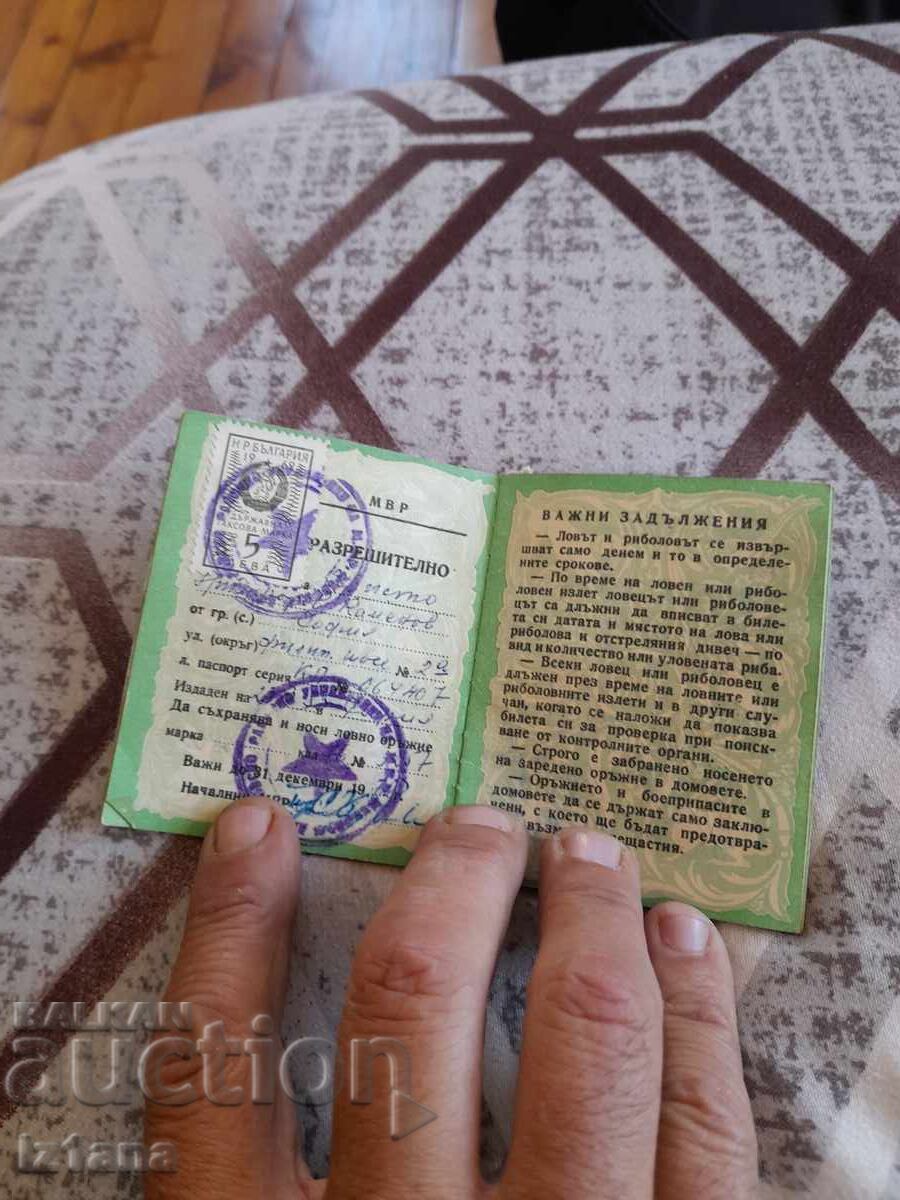 Н.Р.БЪЛГАРИЯ
ДЪРЖАВНА
ТАКСОВА МАРКА
5
ЛЕВА
МВР
РАЗРЕШИТЕЛНО
Христо
Каменов
от гр. (с.) София
ул. (окръг) № 29
л. паспорт серия
Издаден на
Да съхранява и носи ловно оръжие
марка кал. №
Важи до 31 декември 19
Началник
ВАЖНИ ЗАДЪЛЖЕНИЯ
— Ловът и риболовът се извър-
шват само денем и то в определе-
ните срокове.
— По време на ловен или рибо-
ловен излет ловецът или риболове-
цът са длъжни да вписват в биле-
та си датата и мястото на лова или
риболова и отстреляния дивеч — по
вид и количество или уловената риба.
— Всеки ловец или риболовец е
длъжен през време на ловните или
риболовните излети и в други слу-
чаи, когато се наложи да показва
билета си за проверка при поиск-
ване от контролните органи.
— Строго е забранено носенето
на заредено оръжие в домовете.
— Оръжието и боеприпасите в
домовете да се държат само заклю-
чени, с което ще бъдат предотвра-
BALKAN
auction
iz1ana